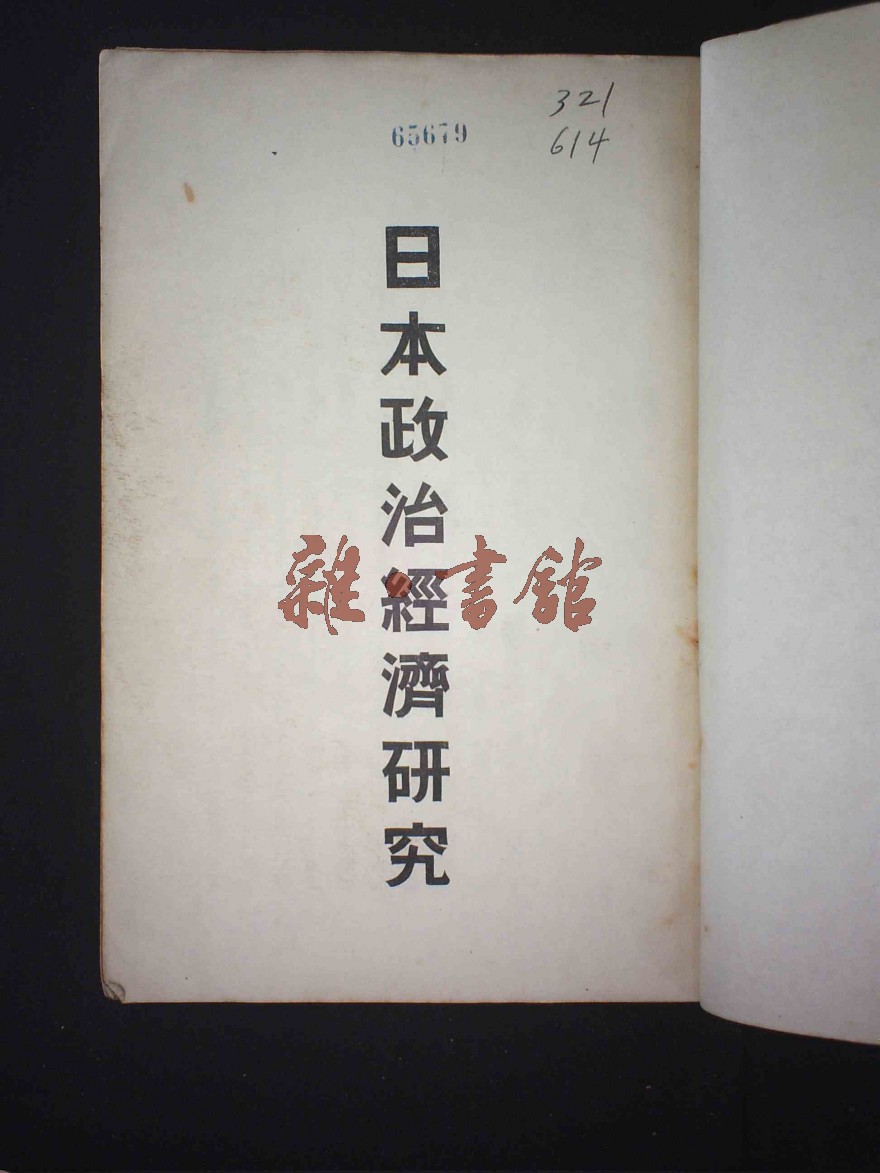 321
614
65679
日本政治經濟研究
雜·書館